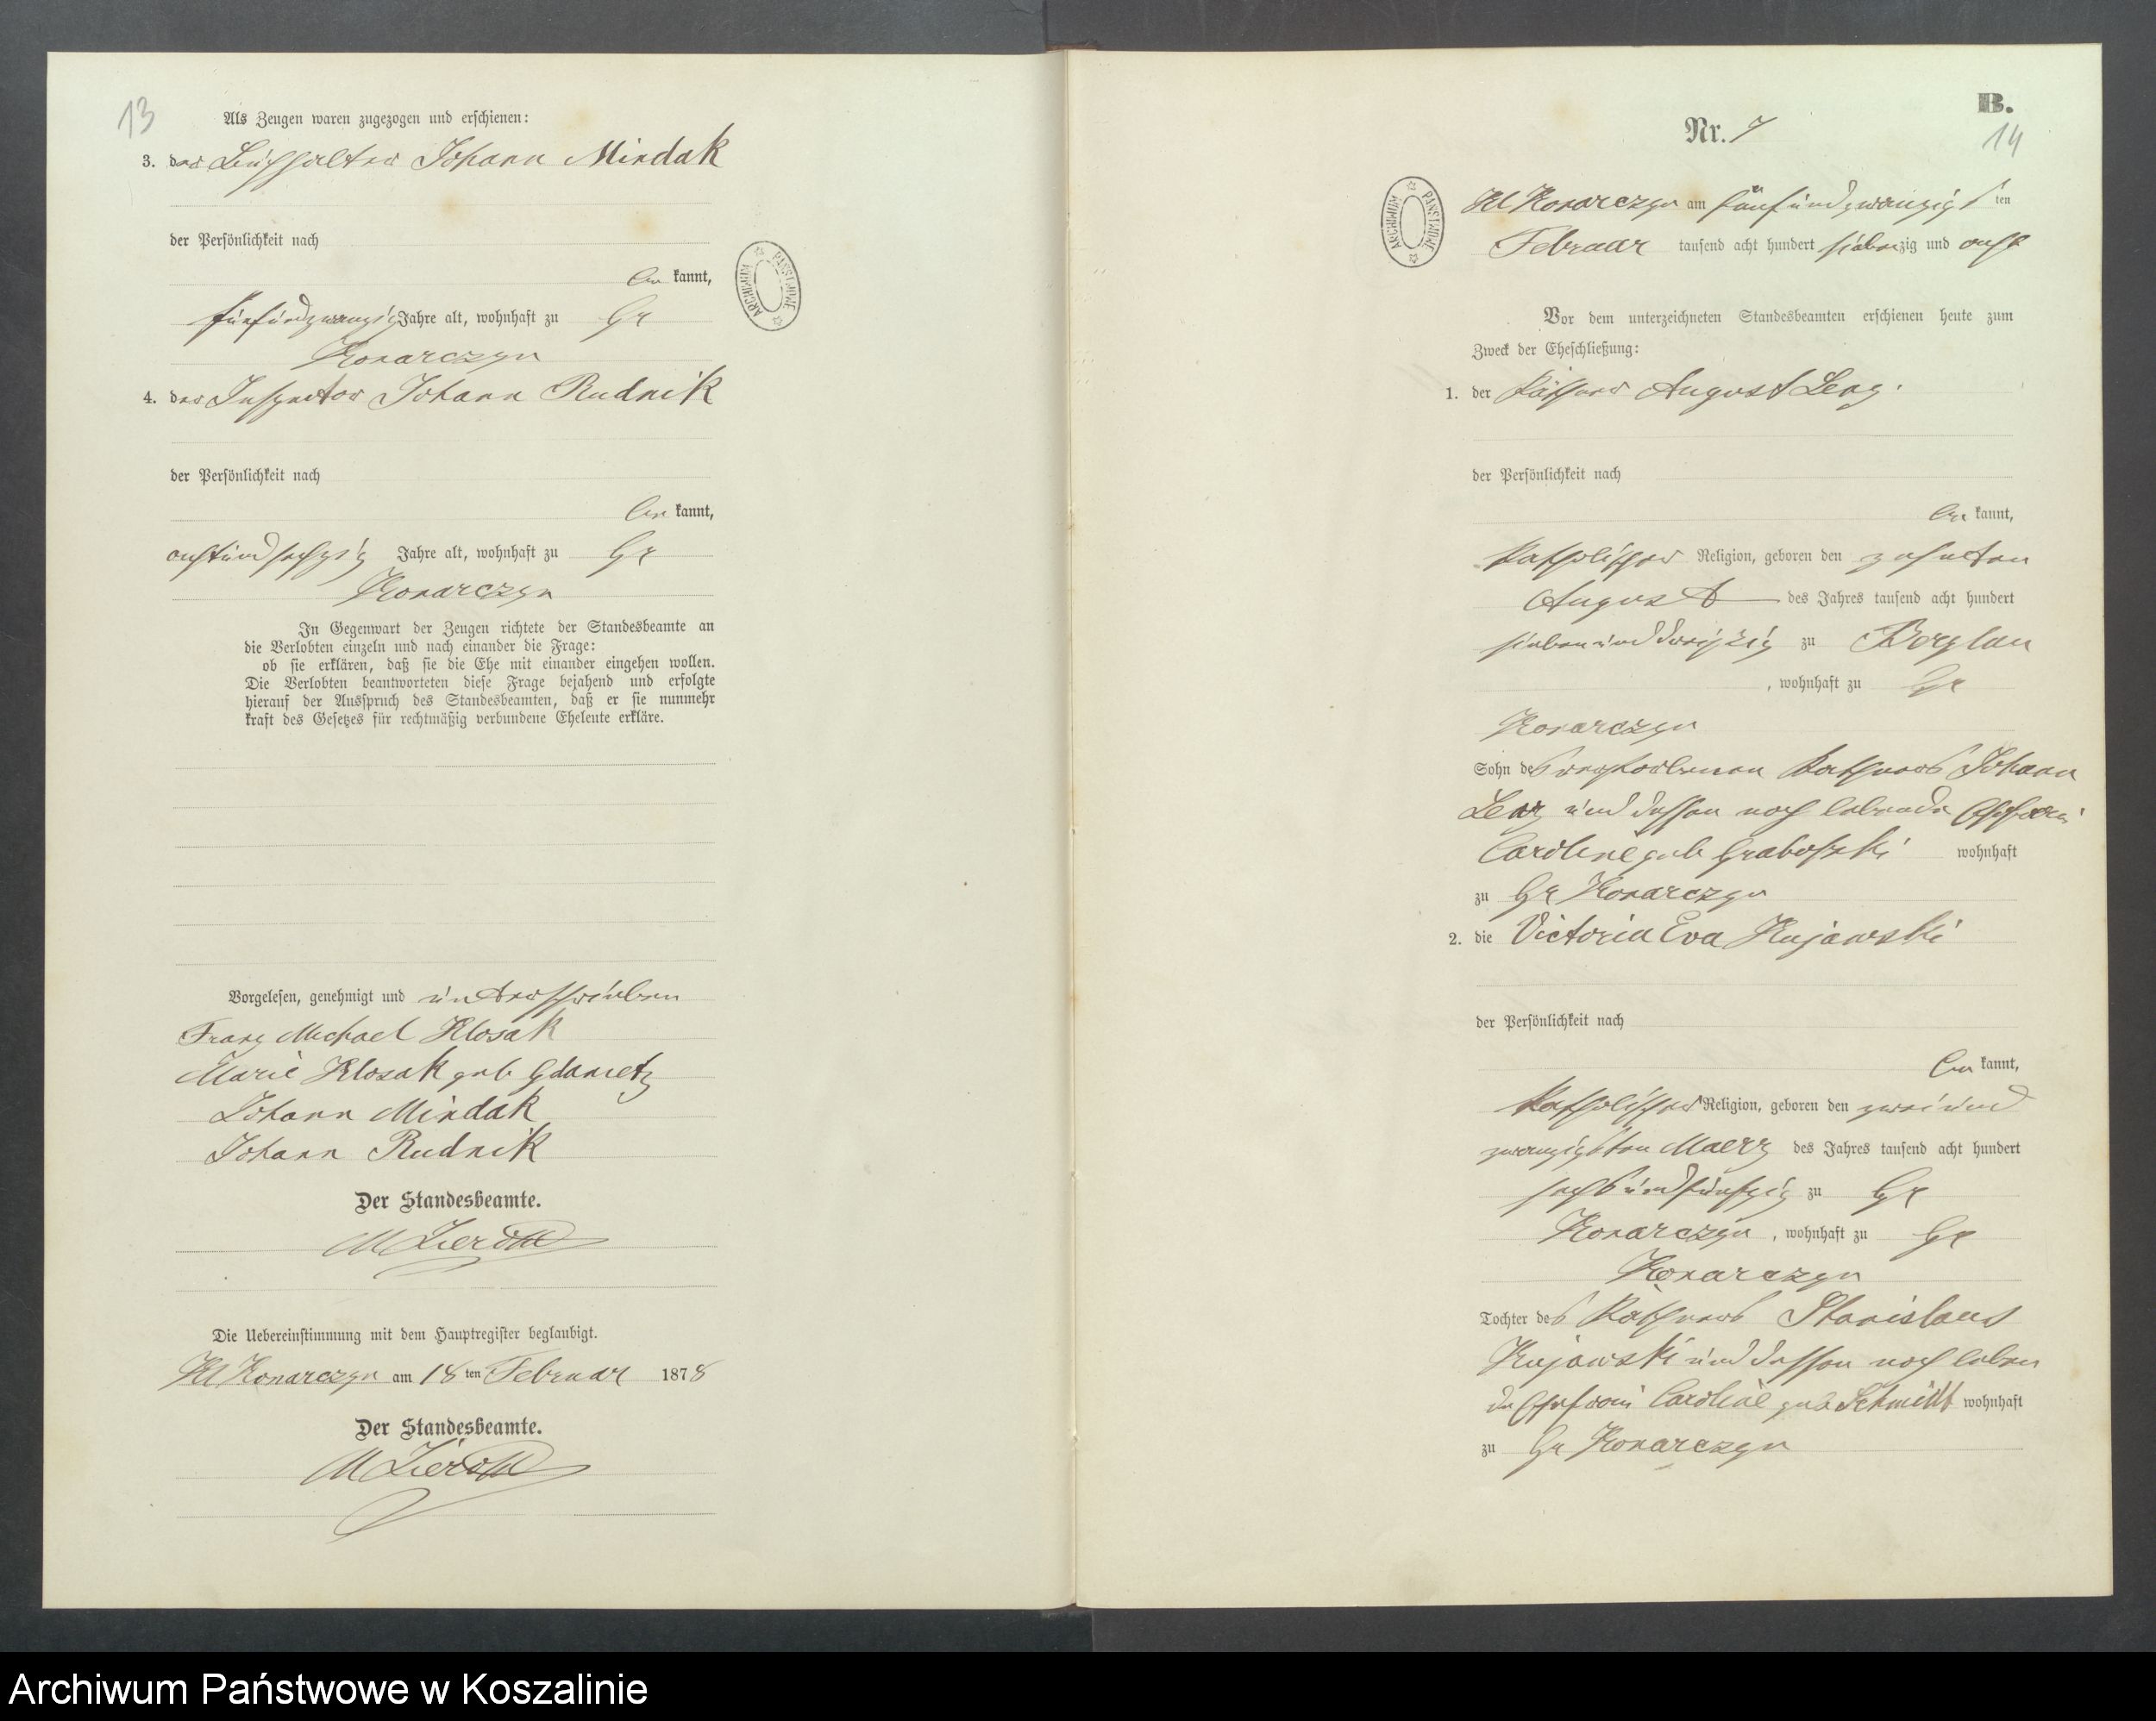 13
Als Zeugen waren zugezogen und erschienen:
3. der Buchhalter Johann Mindak
der Persönlichkeit nach
be kannt,
fünfundzwanzig Jahre alt, wohnhaft zu Gr
Konarczyn
4. der Inspector Johann Rudnik
der Persönlichkeit nach
be kannt,
achtundsechzig Jahre alt, wohnhaft zu Gr
Konarczyn
In Gegenwart der Zeugen richtete der Standesbeamte an
die Verlobten einzeln und nach einander die Frage:
ob sie erklären, daß sie die Ehe mit einander eingehen wollen.
Die Verlobten beantworteten diese Frage bejahend und erfolgte
hierauf der Ausspruch des Standesbeamten, daß er sie nunmehr
kraft des Gesetzes für rechtmäßig verbundene Eheleute erkläre.
Vorgelesen, genehmigt und unterschrieben
Franz Michael Klosak
Marie Klosak geb Gdanietz
Johann Mindak
Johann Rudnik
Der Standesbeamte.
Die Uebereinstimmung mit dem Hauptregister beglaubigt.
Kl Konarczyn am 18 ten Februar 1878
Der Standesbeamte.
ARCHIWUM PAŃSTWOWE
B.
Nr. 7
14
ARCHIWUM PAŃSTWOWE
Kl Konarczyn am fünfundzwanzigs ten
Februar tausend acht hundert siebenzig und acht
Vor dem unterzeichneten Standesbeamten erschienen heute zum
Zweck der Eheschließung:
1. der August
der Persönlichkeit nach
be kannt,
katholischer Religion, geboren den zehnten
August des Jahres tausend acht hundert
siebenunddreißig zu
, wohnhaft zu Gr
Konarczyn
Sohn des verstorbenen Johann
und dessen noch lebende Ehefrau
Caroline geb wohnhaft
zu Gr Konarczyn
2. die Victoria Eva Kujawski
der Persönlichkeit nach
be kannt,
katholischer Religion, geboren den zweiund
zwanzigsten Maerz des Jahres tausend acht hundert
sechsundfünfzig zu Gr
Konarczyn , wohnhaft zu Gr
Konarczyn
Tochter des Stanislaus
Kujawski und dessen noch leben
de Ehefrau Caroline geb Schmidt wohnhaft
zu Gr Konarczyn
Archiwum Państwowe w Koszalinie